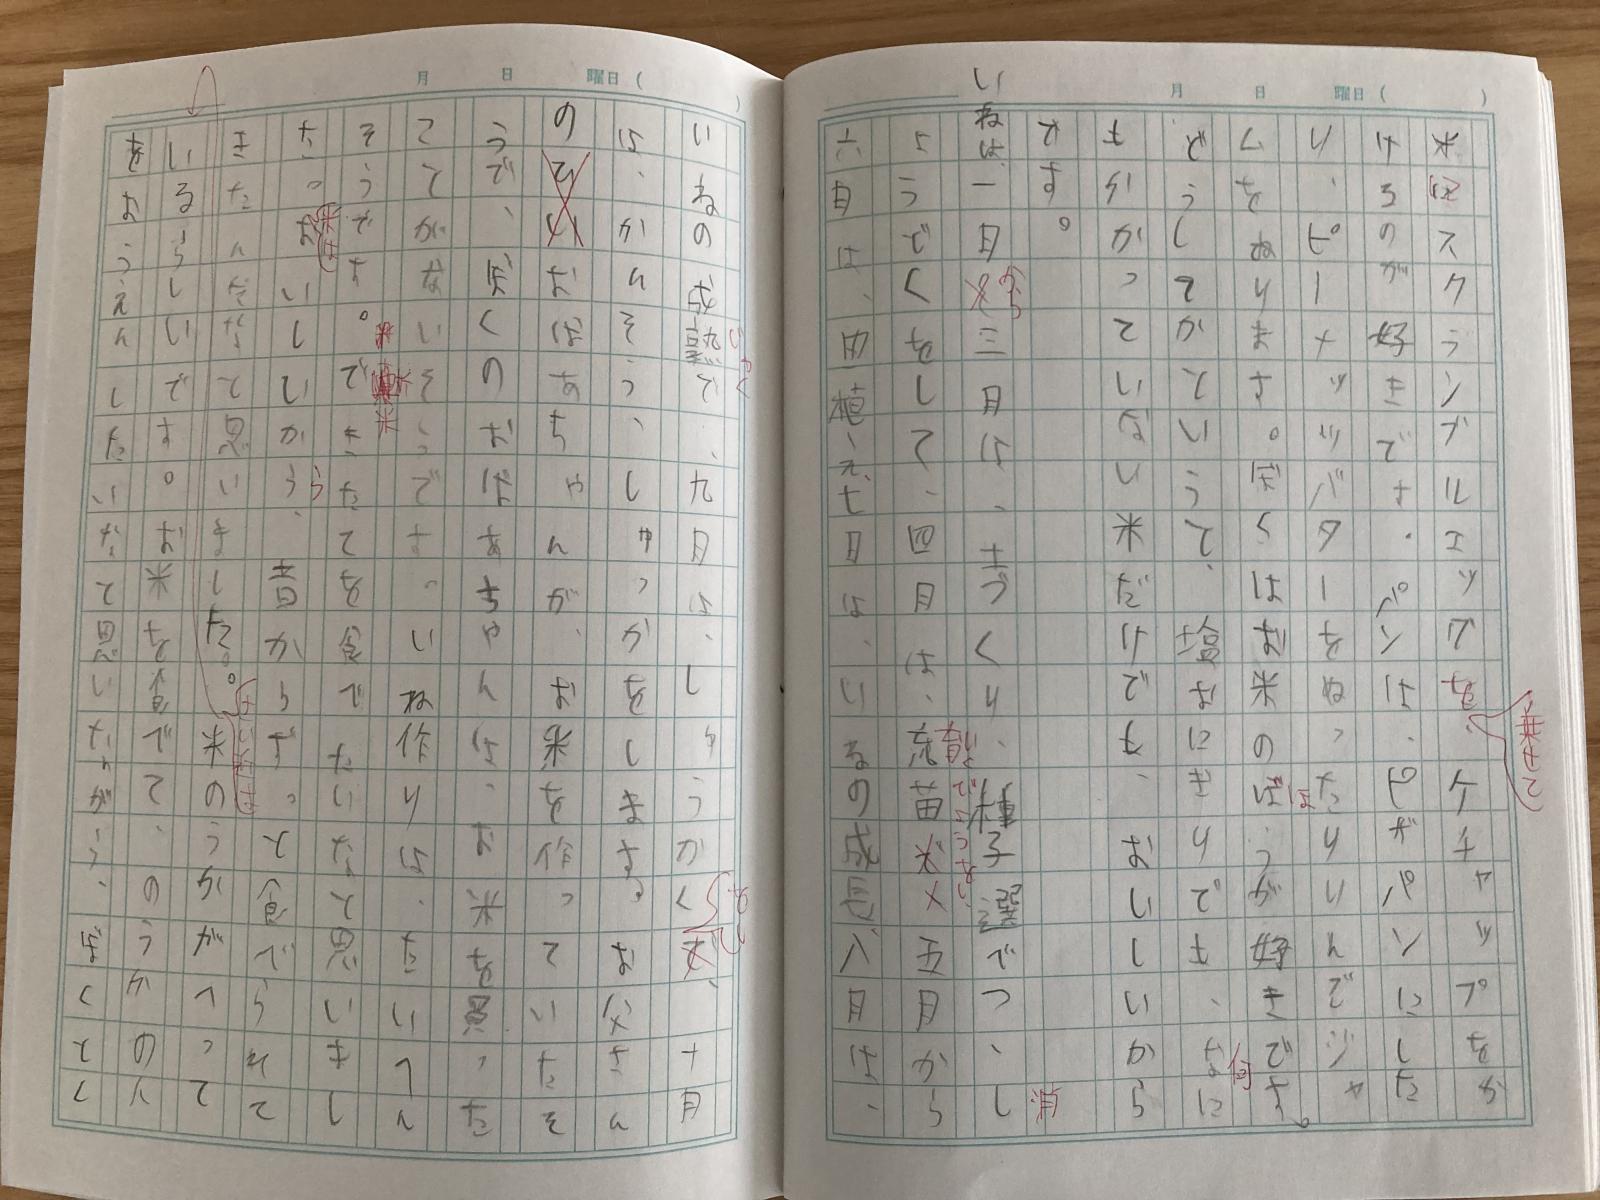 米にスクランブルエッグを、ケチャップをか
乗せて
けるのが好きです。パンは、ピザパンにした
り、ピーナッツバターをぬったりりんごジャ
ムをぬります。ぼくはお米のほうが好きです。
ほ
どうしてかというと、塩はにぎりでも、なに
何
もかかっていない米だけでも、おいしいから
です。
消
いねは、一月から三月は、土づくり、種子選でつ、し
ようどくをして、四月は、苗五月から
六月は、田植え、七月は、いるの成長八月は、
いねの成熟で、九月は、しゅうかく、十月
じゅく
は、かんそう、しゅっかをします。お父さん
のひいおばあちゃんが、お米を作っていたそ
うで、ぼくのおばあちゃんは、お米を買った
ことがないそうです。いね作りは、たいへん
米
米
そうです。できたてを食べたいなと思いまし
米は
た。おいしいから、昔から、ずっと食べられて
ら
きたんだなと思いました。米のうかがへって
さいきんは
いるらしいです。お米を食べて、のうかの人
をおうえんしたいなと思いながら、ぼくとク
月 日 曜日( )
月 日 曜日( )